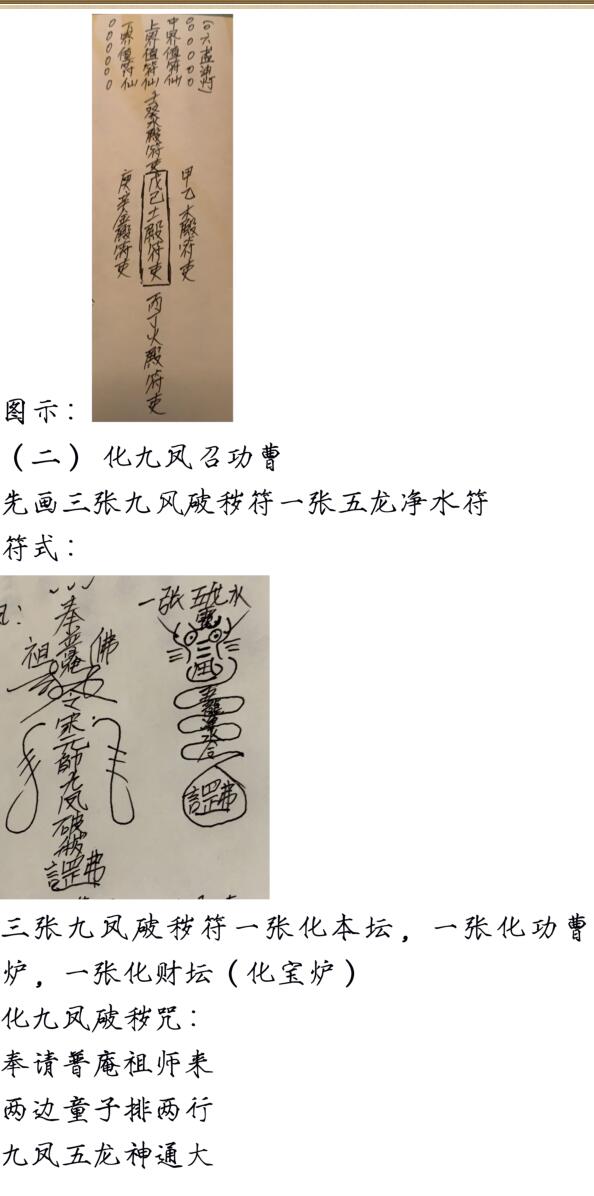 (六盏油灯)
中界值符仙
上界值符仙
下界值符仙
壬癸水殿符吏
甲乙木殿符吏
戊己土殿符吏
庚辛金殿符吏
丙丁火殿符吏
图示：
（二） 化九凤召功曹
先画三张九风破秽符一张五龙净水符
符式：
一张五龙水
奉普庵
祖
佛
令宋元帥九凤破秽
三张九凤破秽符一张化本坛，一张化功曹
炉，一张化财坛（化宝炉）
化九凤破秽咒：
奉请普庵祖师来
两边童子排两行
九凤五龙神通大